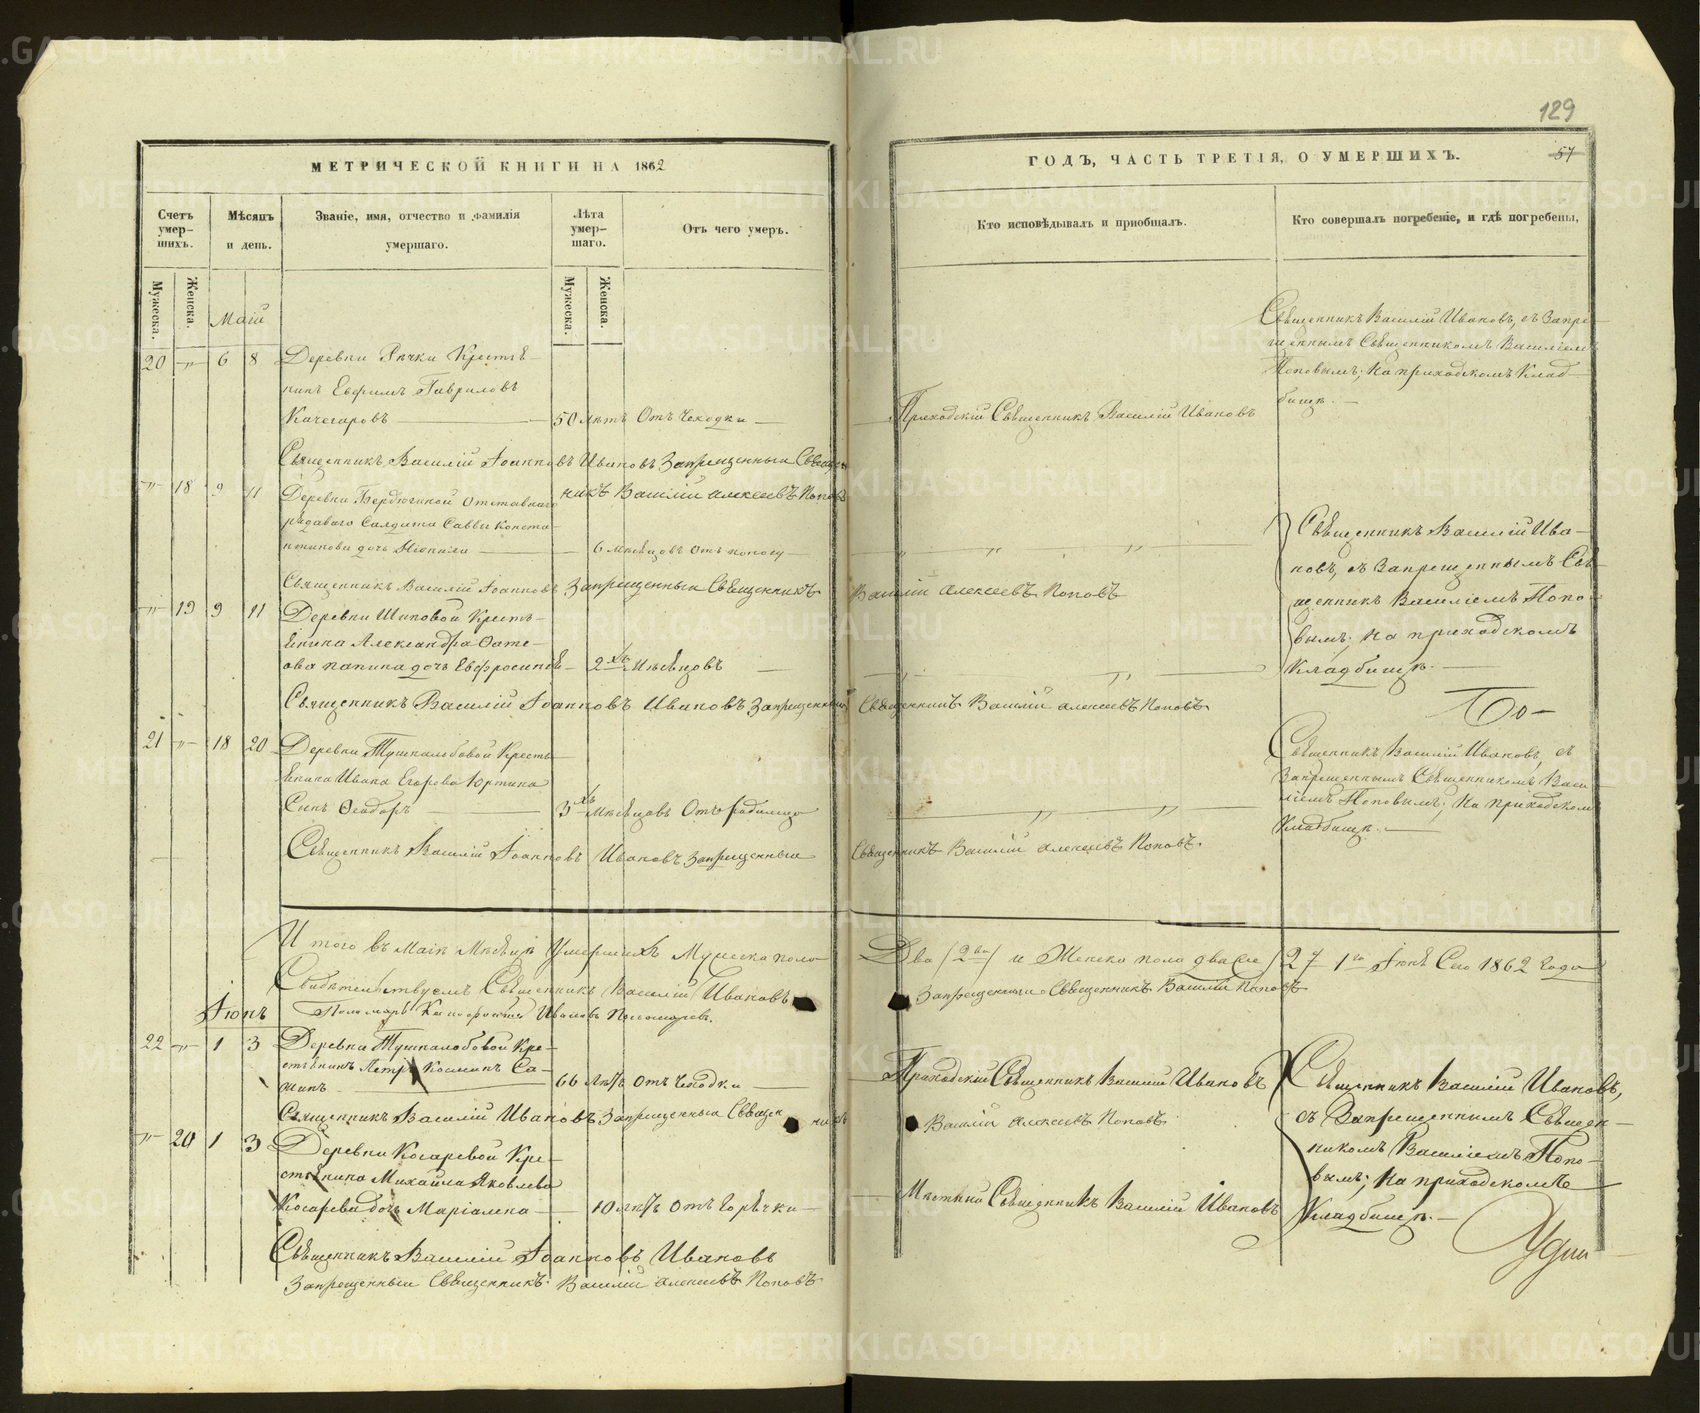 129
МЕТРИЧЕСКОЙ КНИГИ НА 1862
ГОДЪ, ЧАСТЬ ТРЕТІЯ, О УМЕРШИХЪ.
57
Счетъ умер-шихъ.
Мѣсяцъ и день.
Званіе, имя, отчество и фамилія умершаго.
Лѣта умер-шаго.
Отъ чего умеръ.
Кто исповѣдывалъ и пріобщалъ.
Кто совершалъ погребеніе, и гдѣ погребены,
Мужеска.
Женска.
Мужеска.
Женска.
Маій
20 —"— 6 8 Деревни Рѣчки Крестья-
нинъ Евфимъ Гавриловъ
Качегаровъ — 50 лѣтъ Отъ Чеходки —
Приходскій Священникъ Василій Ивановъ
Священникъ Василій Ивановъ, съ Запре-
щеннымъ Священникомъ Василіемъ
Поповымъ; на приходскомъ Клад-
бищѣ. —
Священникъ Василій Іоанновъ Ивановъ Запрещенный Священ
никъ Василій Алексеевъ Поповъ
—"— 18 9 11 Деревни Бердюгиной Отставнаго
рядоваго Салдата Саввы Конста-
нтинова дочь — 6 Мѣсяцовъ Отъ поносу —
Священникъ Василій Ива-
новъ, съ Запрещеннымъ Свя-
щенникъ Василіемъ Попо-
вымъ; на приходскомъ
Кладбищѣ. —
Священникъ Василій Іоанновъ Запрещенный Священникъ Василій Алексеевъ Поповъ
—"— 19 9 11 Деревни Шиповой Кресть-
янина Александра
дочь Евфросинія — 2хъ Мѣсяцовъ —
Священникъ Василій Іоанновъ Ивановъ Запрещенный Священникъ Василій Алексеевъ Поповъ
21 —"— 18 20 Деревни Тушнолобовой Кресть-
янина Ивана Егорова Юртина
Сынъ Ѳеодоръ — 3хъ Мѣсяцовъ Отъ родимцо
Священникъ Василій Ивановъ, съ
Запрещеннымъ Священникомъ Васи-
ліемъ Поповымъ; на приходскомъ
Кладбищѣ. —
Священникъ Василій Іоанновъ Ивановъ Запрещенный Священникъ Василій Алексеевъ Поповъ.
Итого въ Маіѣ Мѣсяцѣ Умершихъ Мужеска пола Два (2ва) и Женска пола двасе 1го Іюня Сего 1862 Года
Свидѣтельствуемъ Священникъ Василій Ивановъ Запрещенный Священникъ Василій Поповъ
Пономарь Ивановъ Пономаревъ.
Іюнь
22 —"— 1 3 Деревни Тушналобовой Кре-
стьянинъ Петръ Козминъ Са-
нинъ — 66 лѣтъ Отъ Чеходки —
Приходскій Священникъ Василій Ивановъ
Священникъ Василій Ивановъ,
съ Запрещеннымъ Священ-
никомъ Василіемъ Попо-
вымъ; на приходскомъ
Кладбищѣ. —
Священникъ Василій Ивановъ Запрещенный Священникъ Василій Алексеевъ Поповъ.
—"— 20 1 3 Деревни Косаревой Кре-
стьянина Михаила Яковлева
Косарева дочь Маріамна — 10 лѣтъ Отъ Горячки —
Мѣстный Священникъ Василій Ивановъ
Священникъ Василій Іоанновъ Ивановъ
Запрещенный Священникъ Василій Алексеевъ Поповъ